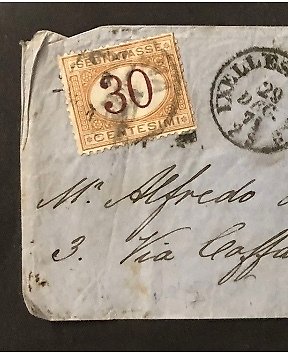 SEGNATASSE
30
CENTESIMI
IXELLES
29
71
Mr Alfredo
3. Via Caffa